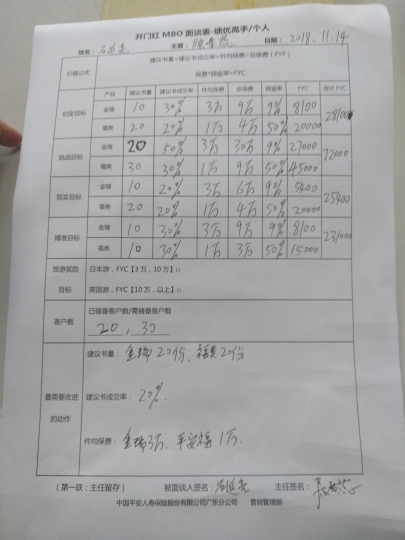 开门红 MBO 面谈表-绩优高手/个人
姓名： 主管： 日期：2018.11.14
价值公式 建议书量*建议书成交率*件均保费=总保费（FYP）
保费*佣金率=FYC
产品 建议书量 建议书成交率 件均保费 总保费 佣金率 FYC 合计 FYC
初定目标 金瑞 10 30% 3万 9万 9% 8100 28100
福美 20 20% 1万 4万 50% 20000
挑战目标 金瑞 20 50% 3万 30万 9% 27000 72000
福美 30 30% 1万 9万 50% 45000
现实目标 金瑞 10 20% 3万 6万 9% 5400 25400
福美 20 20% 1万 4万 50% 20000
精准目标 金瑞 10 30% 3万 9万 9% 8100 23100
福美 10 30% 1万 3万 50% 15000
旅游奖励 日本游，FYC【3万，10万】□
目标 英国游，FYC【10万，以上】□
客户数 已储备客户数/需储备客户数
20，30
最需要改进的动作
建议书量：金瑞20份，福美20份
建议书成交率：20%.
件均保费：金瑞3万，平安福1万.
（第一联：主任留存） 被面谈人签名： 主任签名：
中国平安人寿保险股份有限公司广东分公司 营销管理部